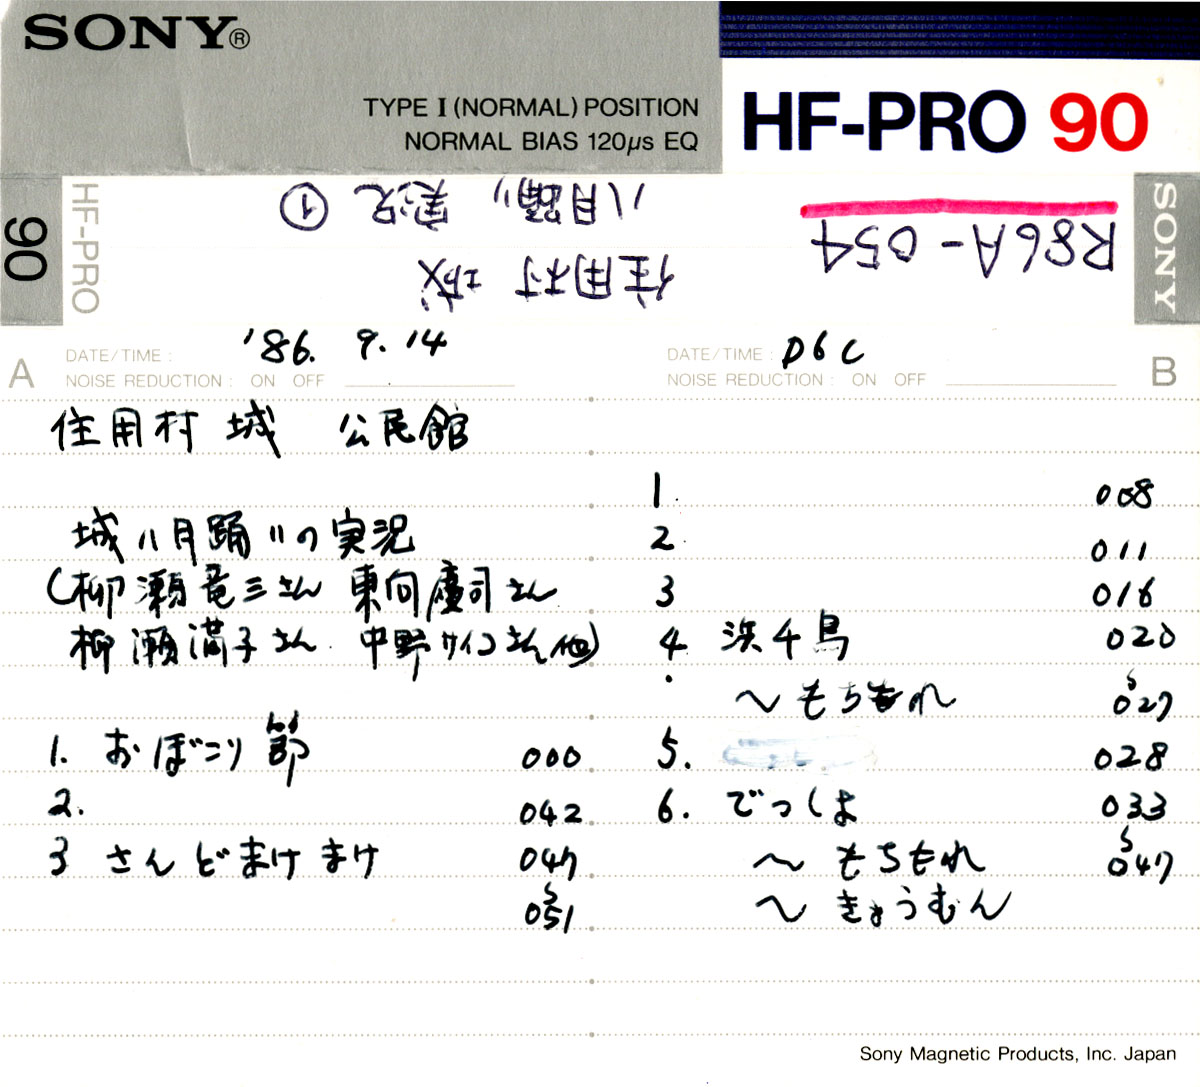 SONY®
TYPE I (NORMAL) POSITION
NORMAL BIAS 120μs EQ
HF-PRO 90
90
HF-PRO
八月踊り 実況 ①
住用村 城
R86A-054
SONY
A
DATE/TIME: '86. 9. 14
NOISE REDUCTION: ON OFF
住用村 城 公民館
城八月踊りの実況
(柳瀬竜三さん 東向慶司さん
柳瀬満子さん 中野サイコさん他)
1. おぼこり節 000
2. 042
3 さんどまけまけ 047
〜
051
B
DATE/TIME: D6C
NOISE REDUCTION: ON OFF
1. 008
2 011
3 016
4 浜千鳥 020
〜もちもれ 〜027
5. 028
6. でっしょ 033
〜もちもれ 〜047
〜きょうむん
Sony Magnetic Products, Inc. Japan